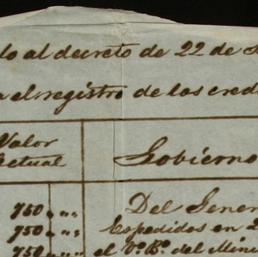 lo al decreto de 22 de
el registro de los cred
Valor
Actual
Gobierno
750 " "
Del Gener
750 " "
Expedidos en 2
750 " "
el V.º B.º del Mini